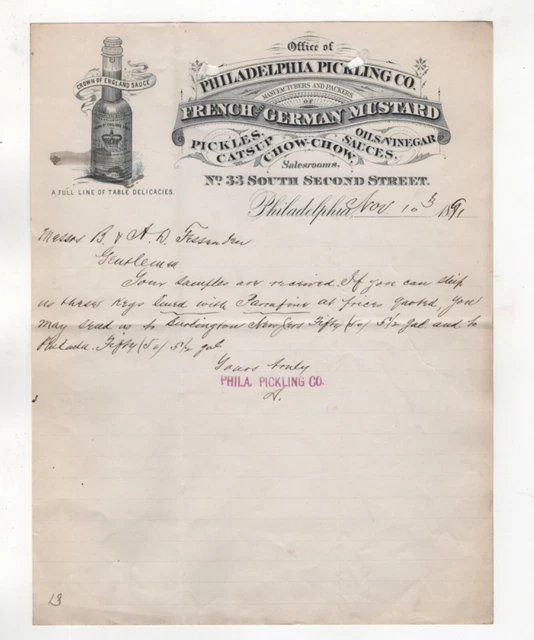 Office of
PHILADELPHIA PICKLING CO.
MANUFACTURERS AND PACKERS
OF
FRENCH AND GERMAN MUSTARD
PICKLES, CATSUP, CHOW-CHOW, SAUCES, OILS, VINEGAR
Salesrooms,
No 33 SOUTH SECOND STREET.
CROWN OF ENGLAND SAUCE
A FULL LINE OF TABLE DELICACIES.
Philadelphia, Nov. 10th 1891
Messrs B. & A. D. Fessenden
Gentlemen
Your samples are received. If you can ship
us these kegs lined with Paraffine at prices quoted, you
may send us to Burlington New Jers Fifty (50) 5 1/2 gal. and to
Philada. Fifty (50) 5 1/2 gal.
Yours truly
PHILA. PICKLING CO.
13